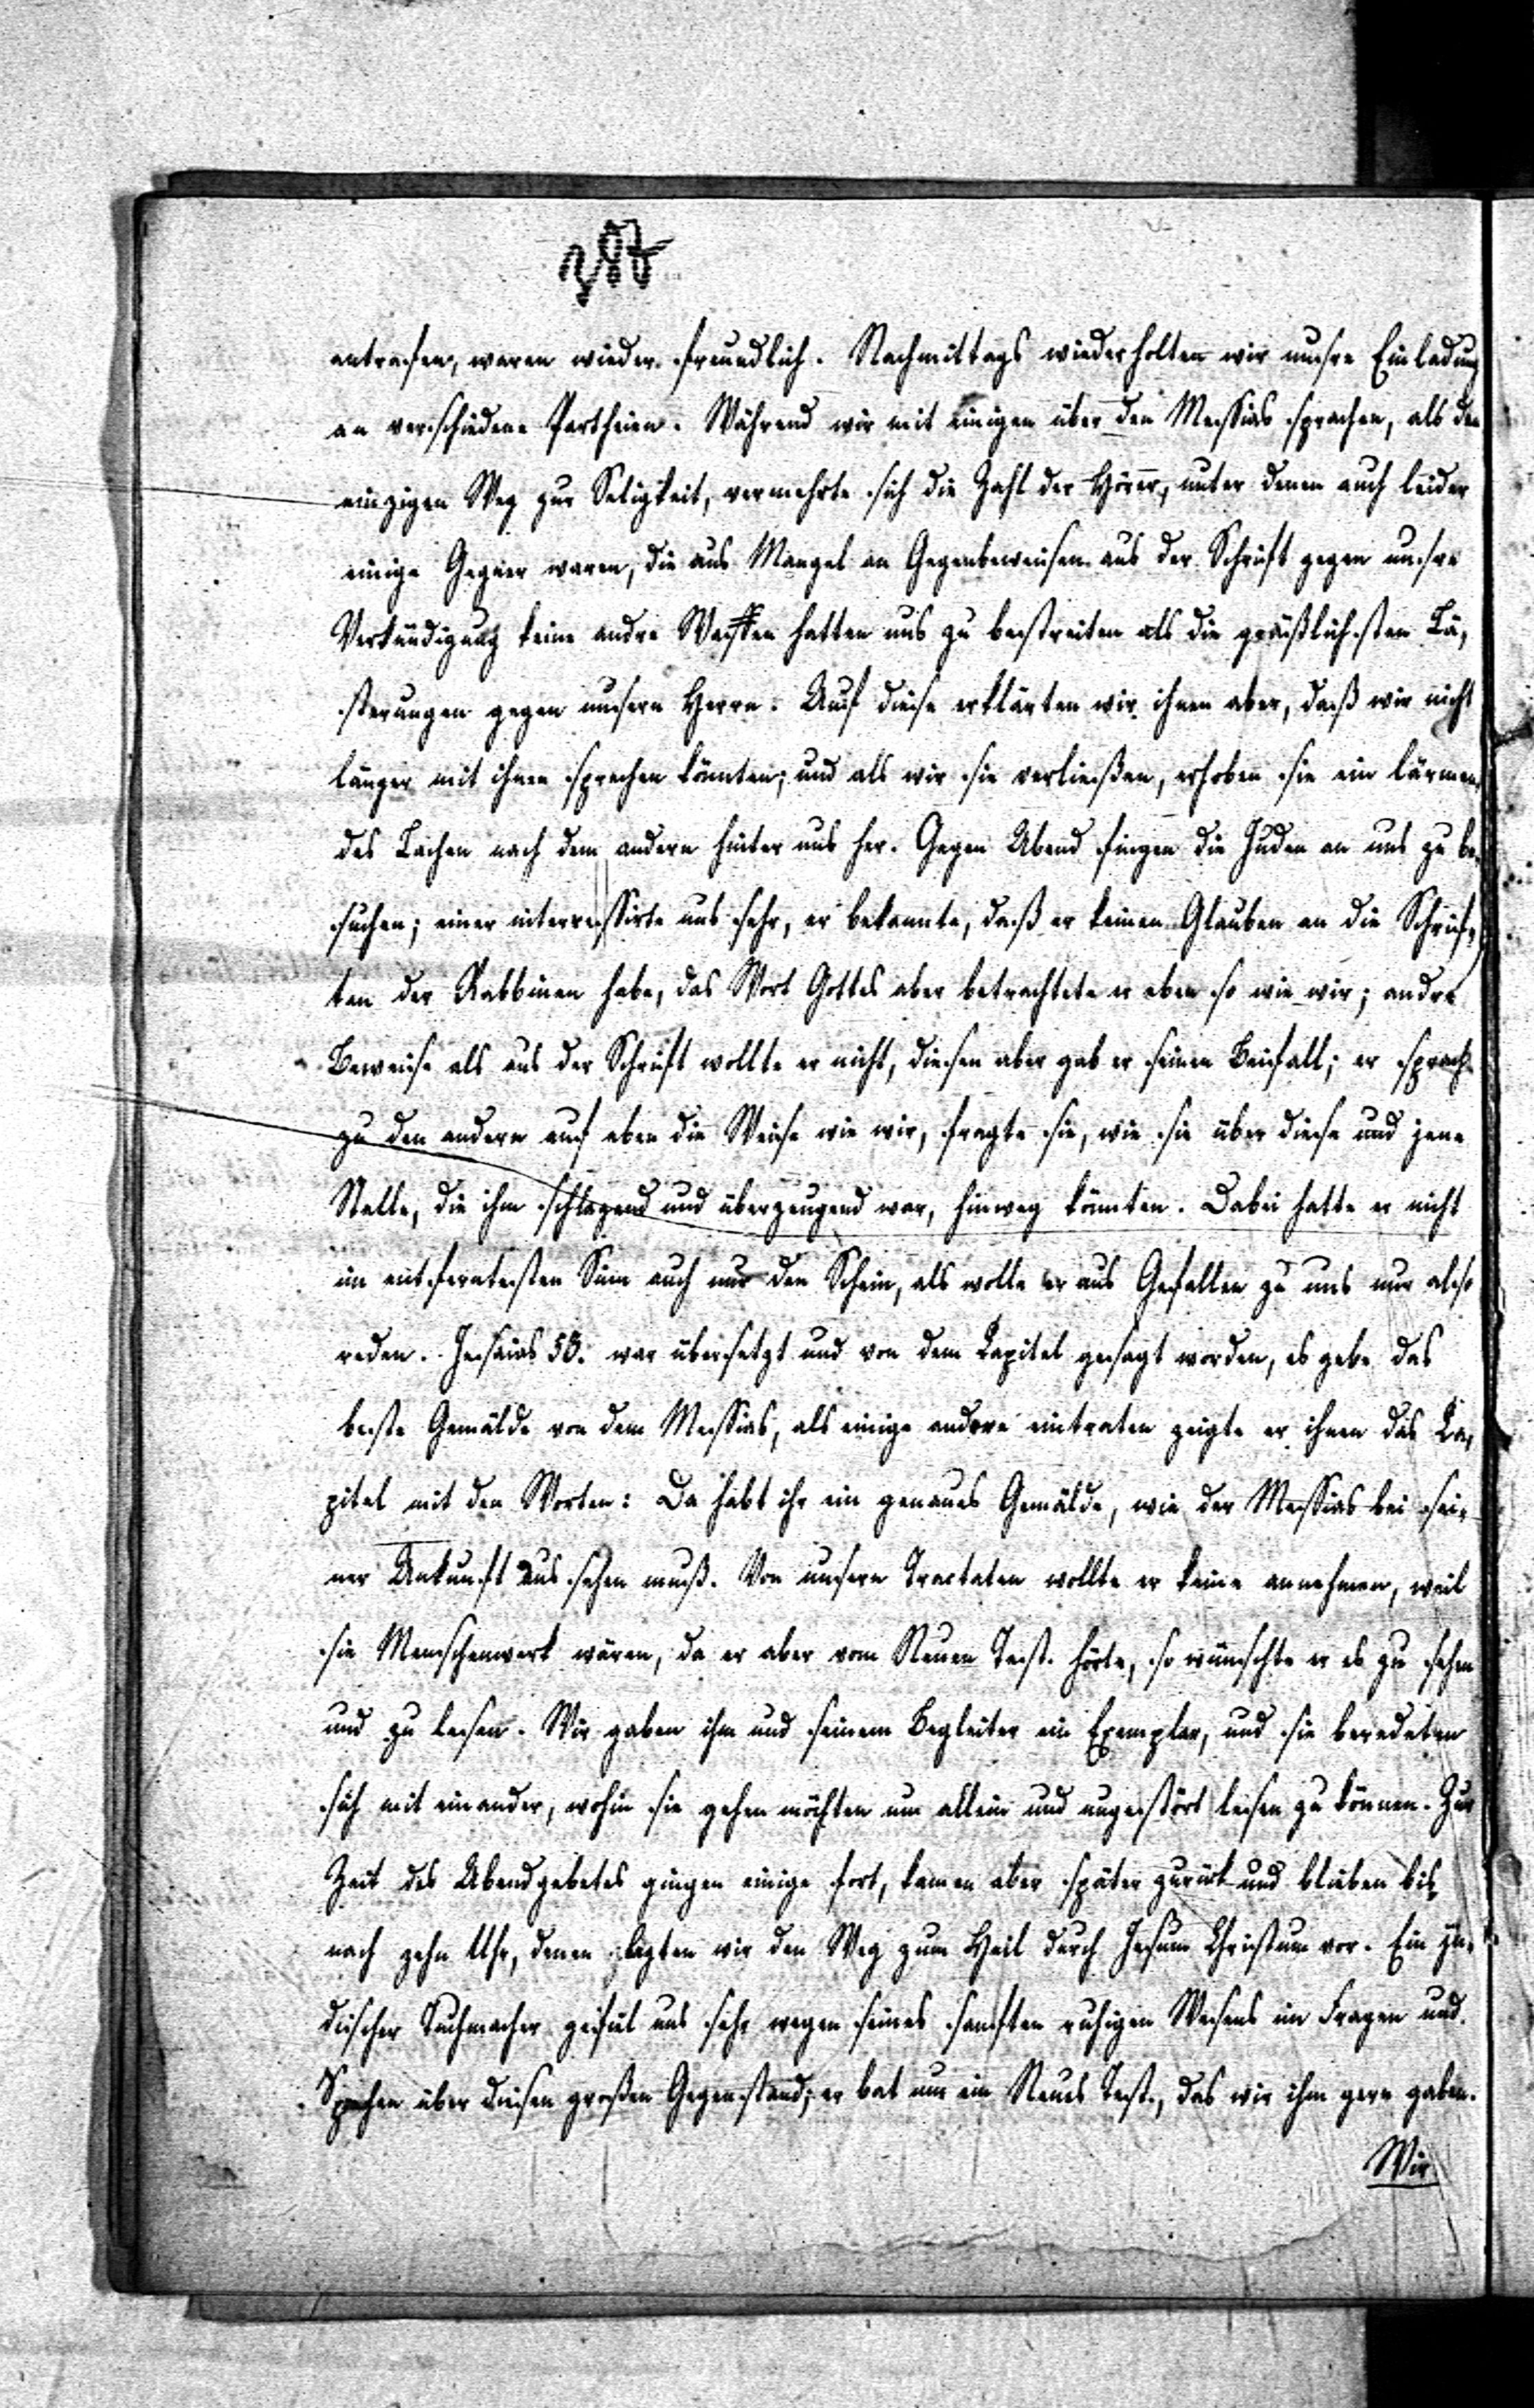 antrafen, waren wieder freundlich. Nachmittags wiederholten wir unsre Einladung
an verschiedene Partheien. Während wir mit einigen über den Messias sprachen, als den
einzigen Weg zur Seligkeit, vermehrte sich die Zahl der Hörer, unter denen auch leider
einige Gegner waren, die aus Mangel an Gegenbeweisen aus der Schrift gegen unsre
Verkündigung keine andre Waffen hatten uns zu bestreiten als die gräßlichsten Lä,
sterungen gegen unsern Herrn. Auf diese erklärten wir ihnen aber, daß wir nicht
länger mit ihnen sprechen könnten; und als wir sie verließen, erhoben sie ein lärmen,
des Lachen nach dem andern hinter uns her. Gegen Abend fingen die Juden an uns zu be,
suchen; einer interressirte uns sehr, er bekannte, daß er keinen Glauben an die Schrif,
ten der Rabbinen habe, das Wort Gottes aber betrachtete er eben so wie wir; andre
Beweise als aus der Schrift wollte er nicht, diesen aber gab er seinen Beifall; er sprach
zu den andern auf eben die Weise wie wir, fragte sie, wie sie über diese und jene
Stelle, die ihm schlagend und überzeugend war, hinweg könnten. Dabei hatte er nicht
im entferntesten Sinn auch nur den Schein, als wolle er aus Gefallen zu uns nur also
reden. Jesaias 53. war übersetzt und von dem Kapitel gesagt worden, es gebe das
beste Gemälde von dem Messias, als einige andere eintraten zeigte er ihnen das Ka,
pitel mit den Worten: Da habt ihr ein genaues Gemälde, wie der Messias bei sei,
ner Ankunft aussehen muß. Von unsern Tractaten wollte er keine annehmen, weil
sie Menschenwerk wären, da er aber vom Neuen Test. hörte, so wünschte er es zu sehen
und zu lesen. Wir gaben ihm und seinem Begleiter ein Exemplar, und sie beredeten
sich mit einander, wohin sie gehen möchten um allein und ungestört lesen zu können. Zur
Zeit des Abendgebetes gingen einige fort, kamen aber später zurück und blieben bis
nach zehn Uhr, denen legten wir den Weg zum Heil durch Jesum Christum vor. Ein jü,
discher Tuchmacher gefiel uns sehr wegen seines sanften ruhigen Wesens im Fragen und
Sprechen über diesen großen Gegenstand; er bat um ein Neues Test., das wir ihm gern gaben.
Wir